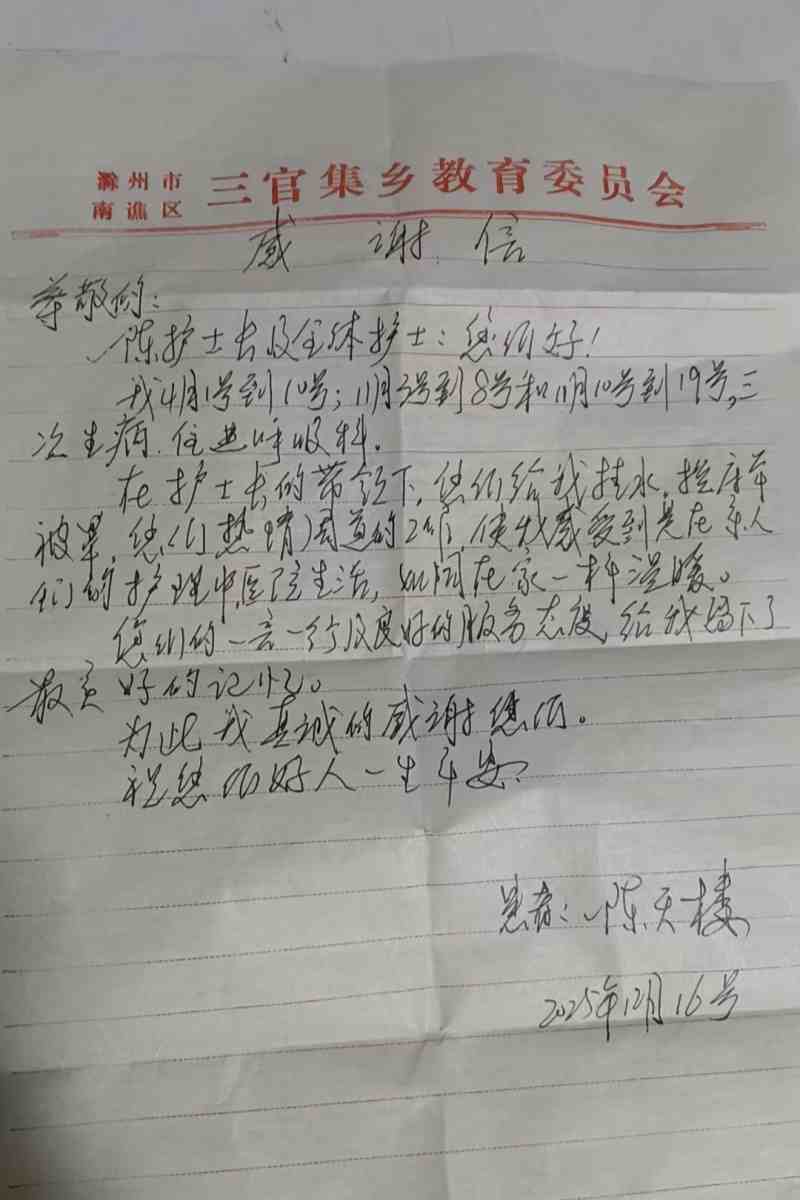 滁州市
南谯区
三官集乡教育委员会
感 谢 信
尊敬的:
陈护士长及全体护士:您们好!
我4月1号到10号;11月3号到8号和11月10号到19号,三
次生病.住进呼吸科.
在护士长的带领下,您们给我挂水,
被罩,您们热情周道的工作,使我感受到是在亲人
们的护理中,医院生活,如同在家一样温暖。
您们的一言一行及良好的服务态度,给我留下了
好的记忆。
为此我真诚的感谢您们。
祝您们好人一生平安!
患者:陈天楼
2025年12月16号